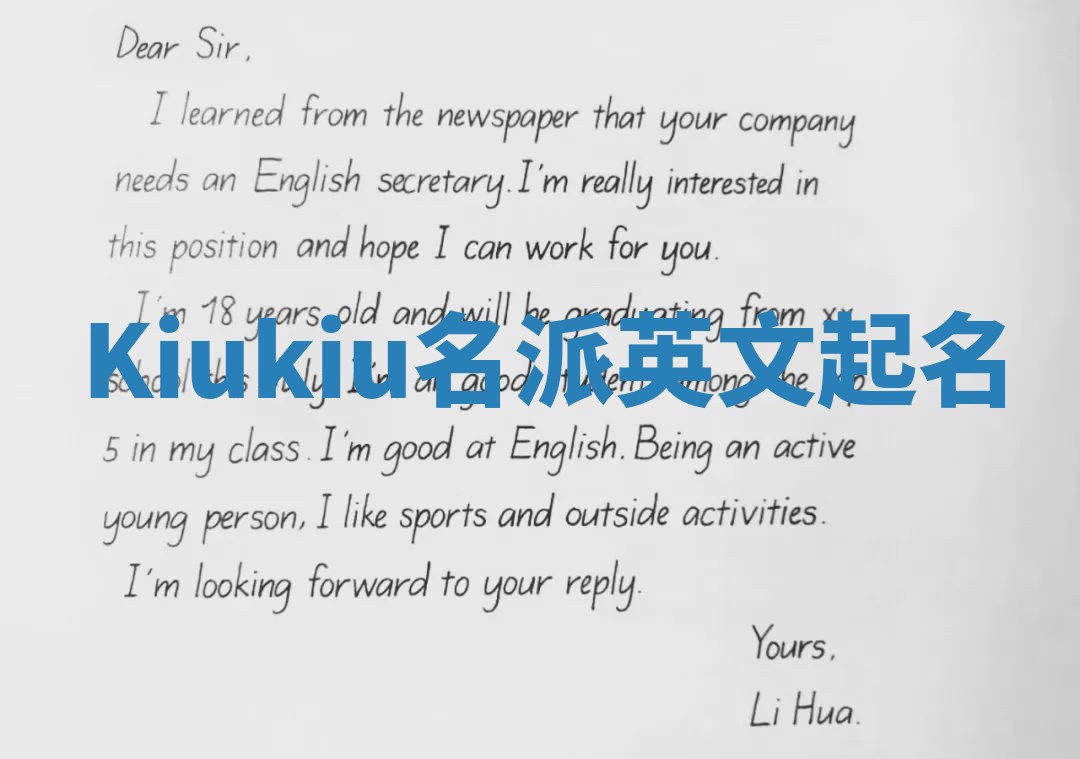 Dear Sir,
I learned from the newspaper that your company
needs an English secretary. I'm really interested in
this position and hope I can work for you.
I'm 18 years old and will be graduating from xx
Kiukiu名派英文起名
school this July. I'm a good student among the top
5 in my class. I'm good at English. Being an active
young person, I like sports and outside activities.
I'm looking forward to your reply.
Yours,
Li Hua.